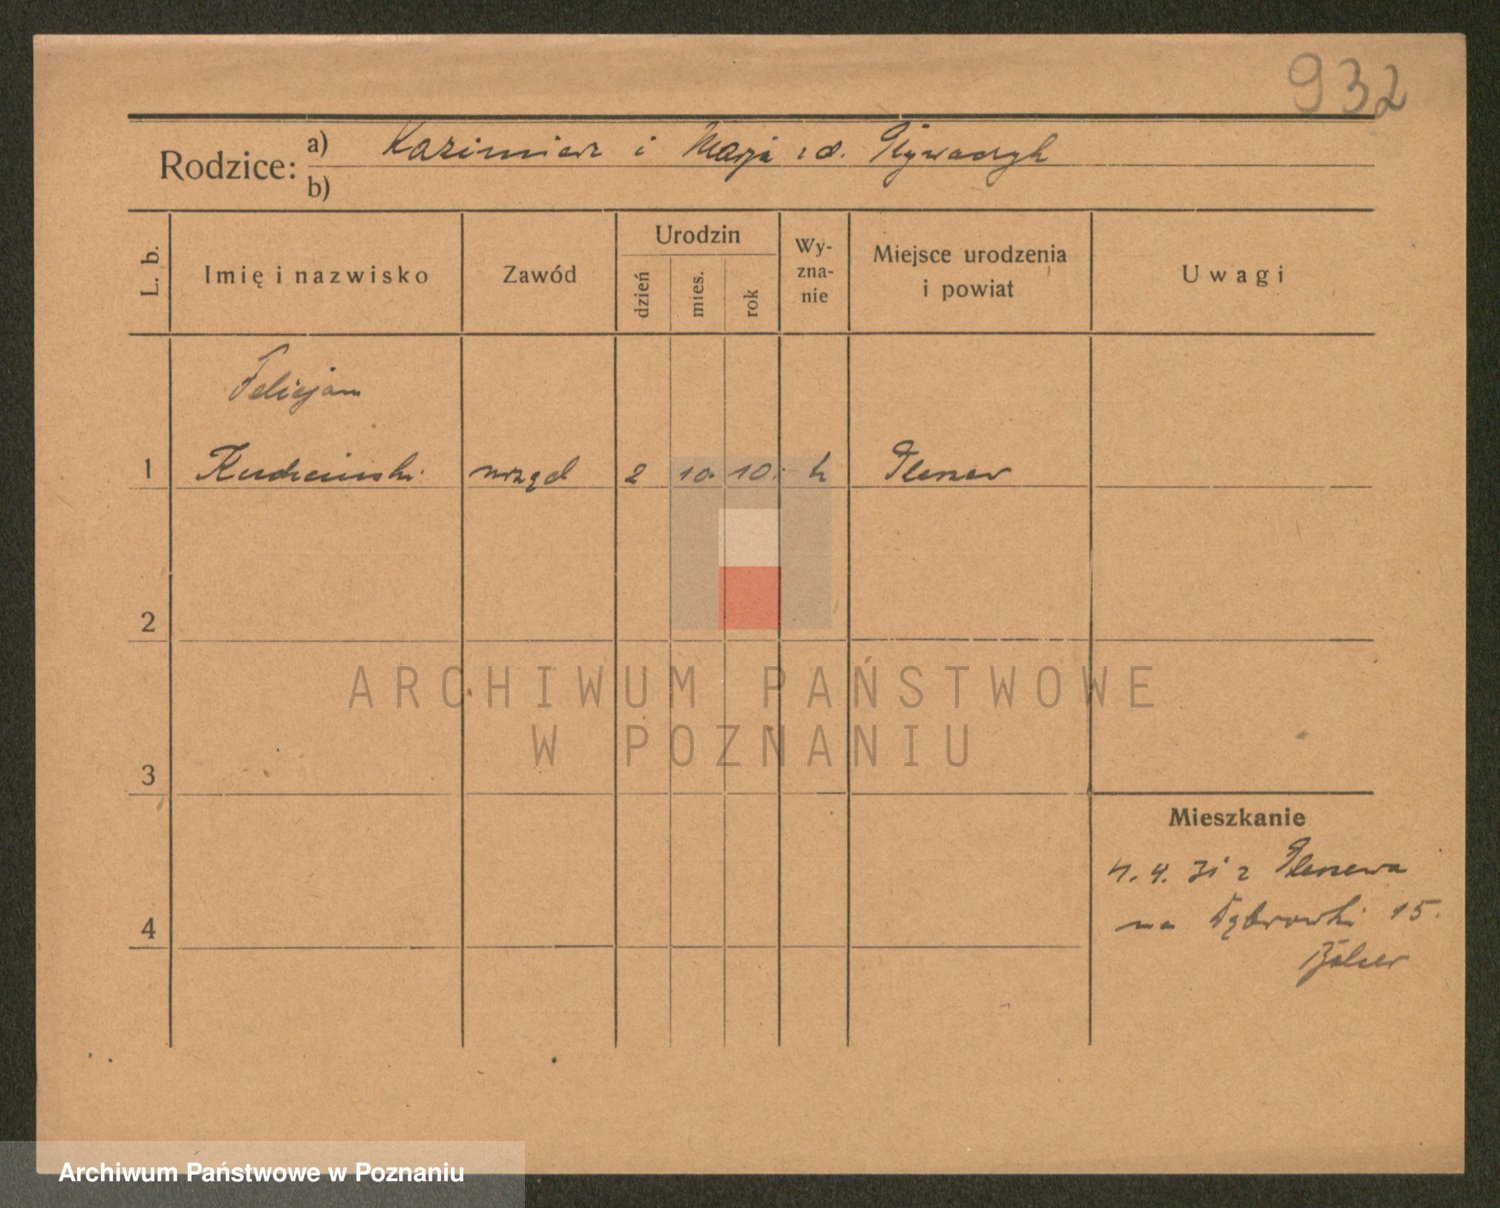 932
Rodzice: a) Kazimierz i Marja z d. Pływaczyk
b)
L. b. Imię i nazwisko Zawód Urodzin dzień mies. rok Wyznanie Miejsce urodzenia i powiat Uwagi
Felicjan
1 urzęd 2 10. 10. k Pleszew
2
ARCHIWUM PAŃSTWOWE
W POZNANIU
3
Mieszkanie
4. 31 z Pleszewa
4 na Dąbrowski 15.
Archiwum Państwowe w Poznaniu